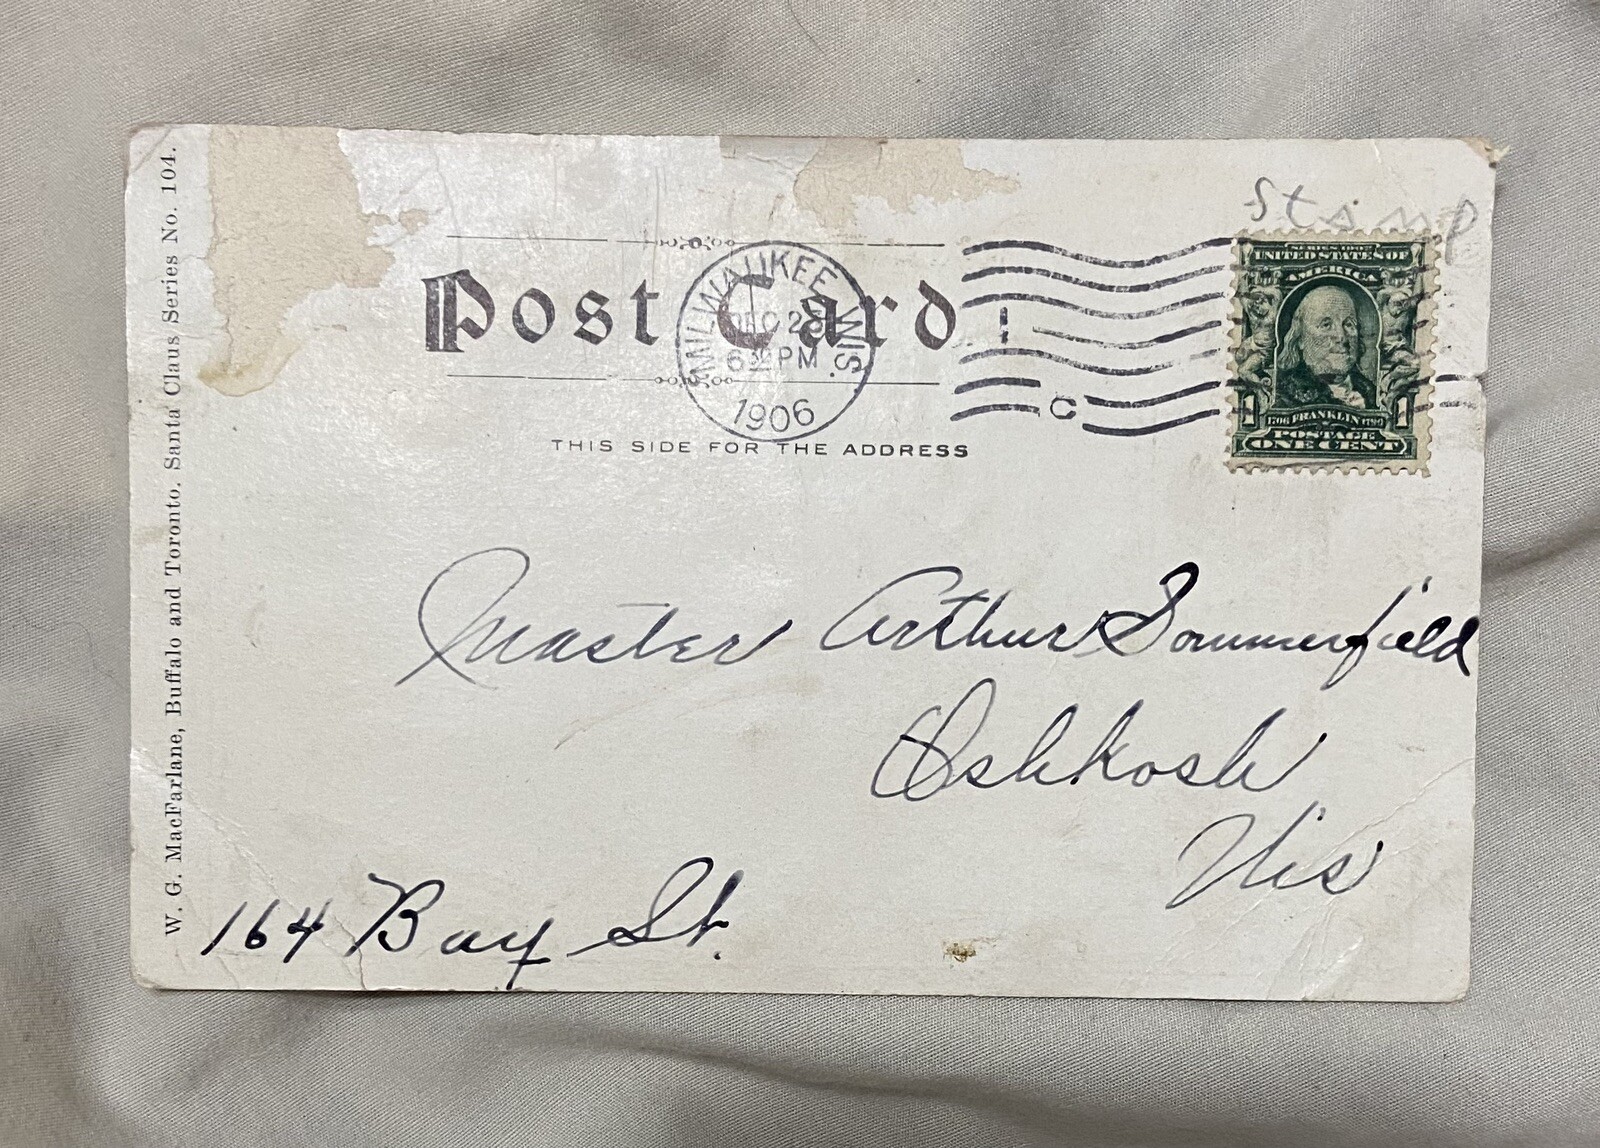 W. G. MacFarlane, Buffalo and Toronto. Santa Claus Series No. 104.
stamp
Post Card
THIS SIDE FOR THE ADDRESS
MILWAUKEE, WIS.
DEC
6 30 PM
1906
1
C
SERIES 1902
UNITED STATES OF
AMERICA
1 1706 FRANKLIN 1790 1
POSTAGE
ONE CENT
Master Arthur Sommerfield
Oshkosh
Wis
164 Bay St.